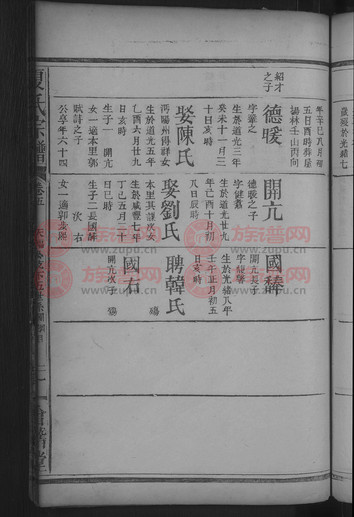 年辛巳八月初
五日酉時葬屋
揚林壬山丙向
紹才
之子
德暖
生於道光三年
癸未十一月二
十日亥時
娶陳氏
沔陽州得祥女
生於道光五年
乙酉六月廿九
日亥時
生子一 開亢
女一適本里郭
賦詩之子
公享年六十四
開亢
德暖之子
生於道光廿九
年己酉十月初
八日辰時
娶劉氏
本里其謨次女
生於咸豐七年
丁巳五月二十
日巳時
生子二長國馞
次右
女一適郭
國馞
開亢長子
生於光緒八年
壬午正月初五
日亥時
聘韓氏
殤
國右
開亢次子
殤
氏宗譜
卷五
族谱网